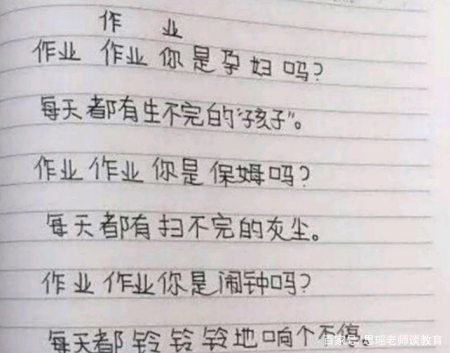 作 业
作业 作业 你是孕妇吗？
每天都有生不完的“孩子”。
作业 作业 你是保姆吗？
每天都有扫不完的灰尘。
作业 作业你是闹钟吗？
每天都铃铃铃地响个不停
百家号/思瑶老师谈教育